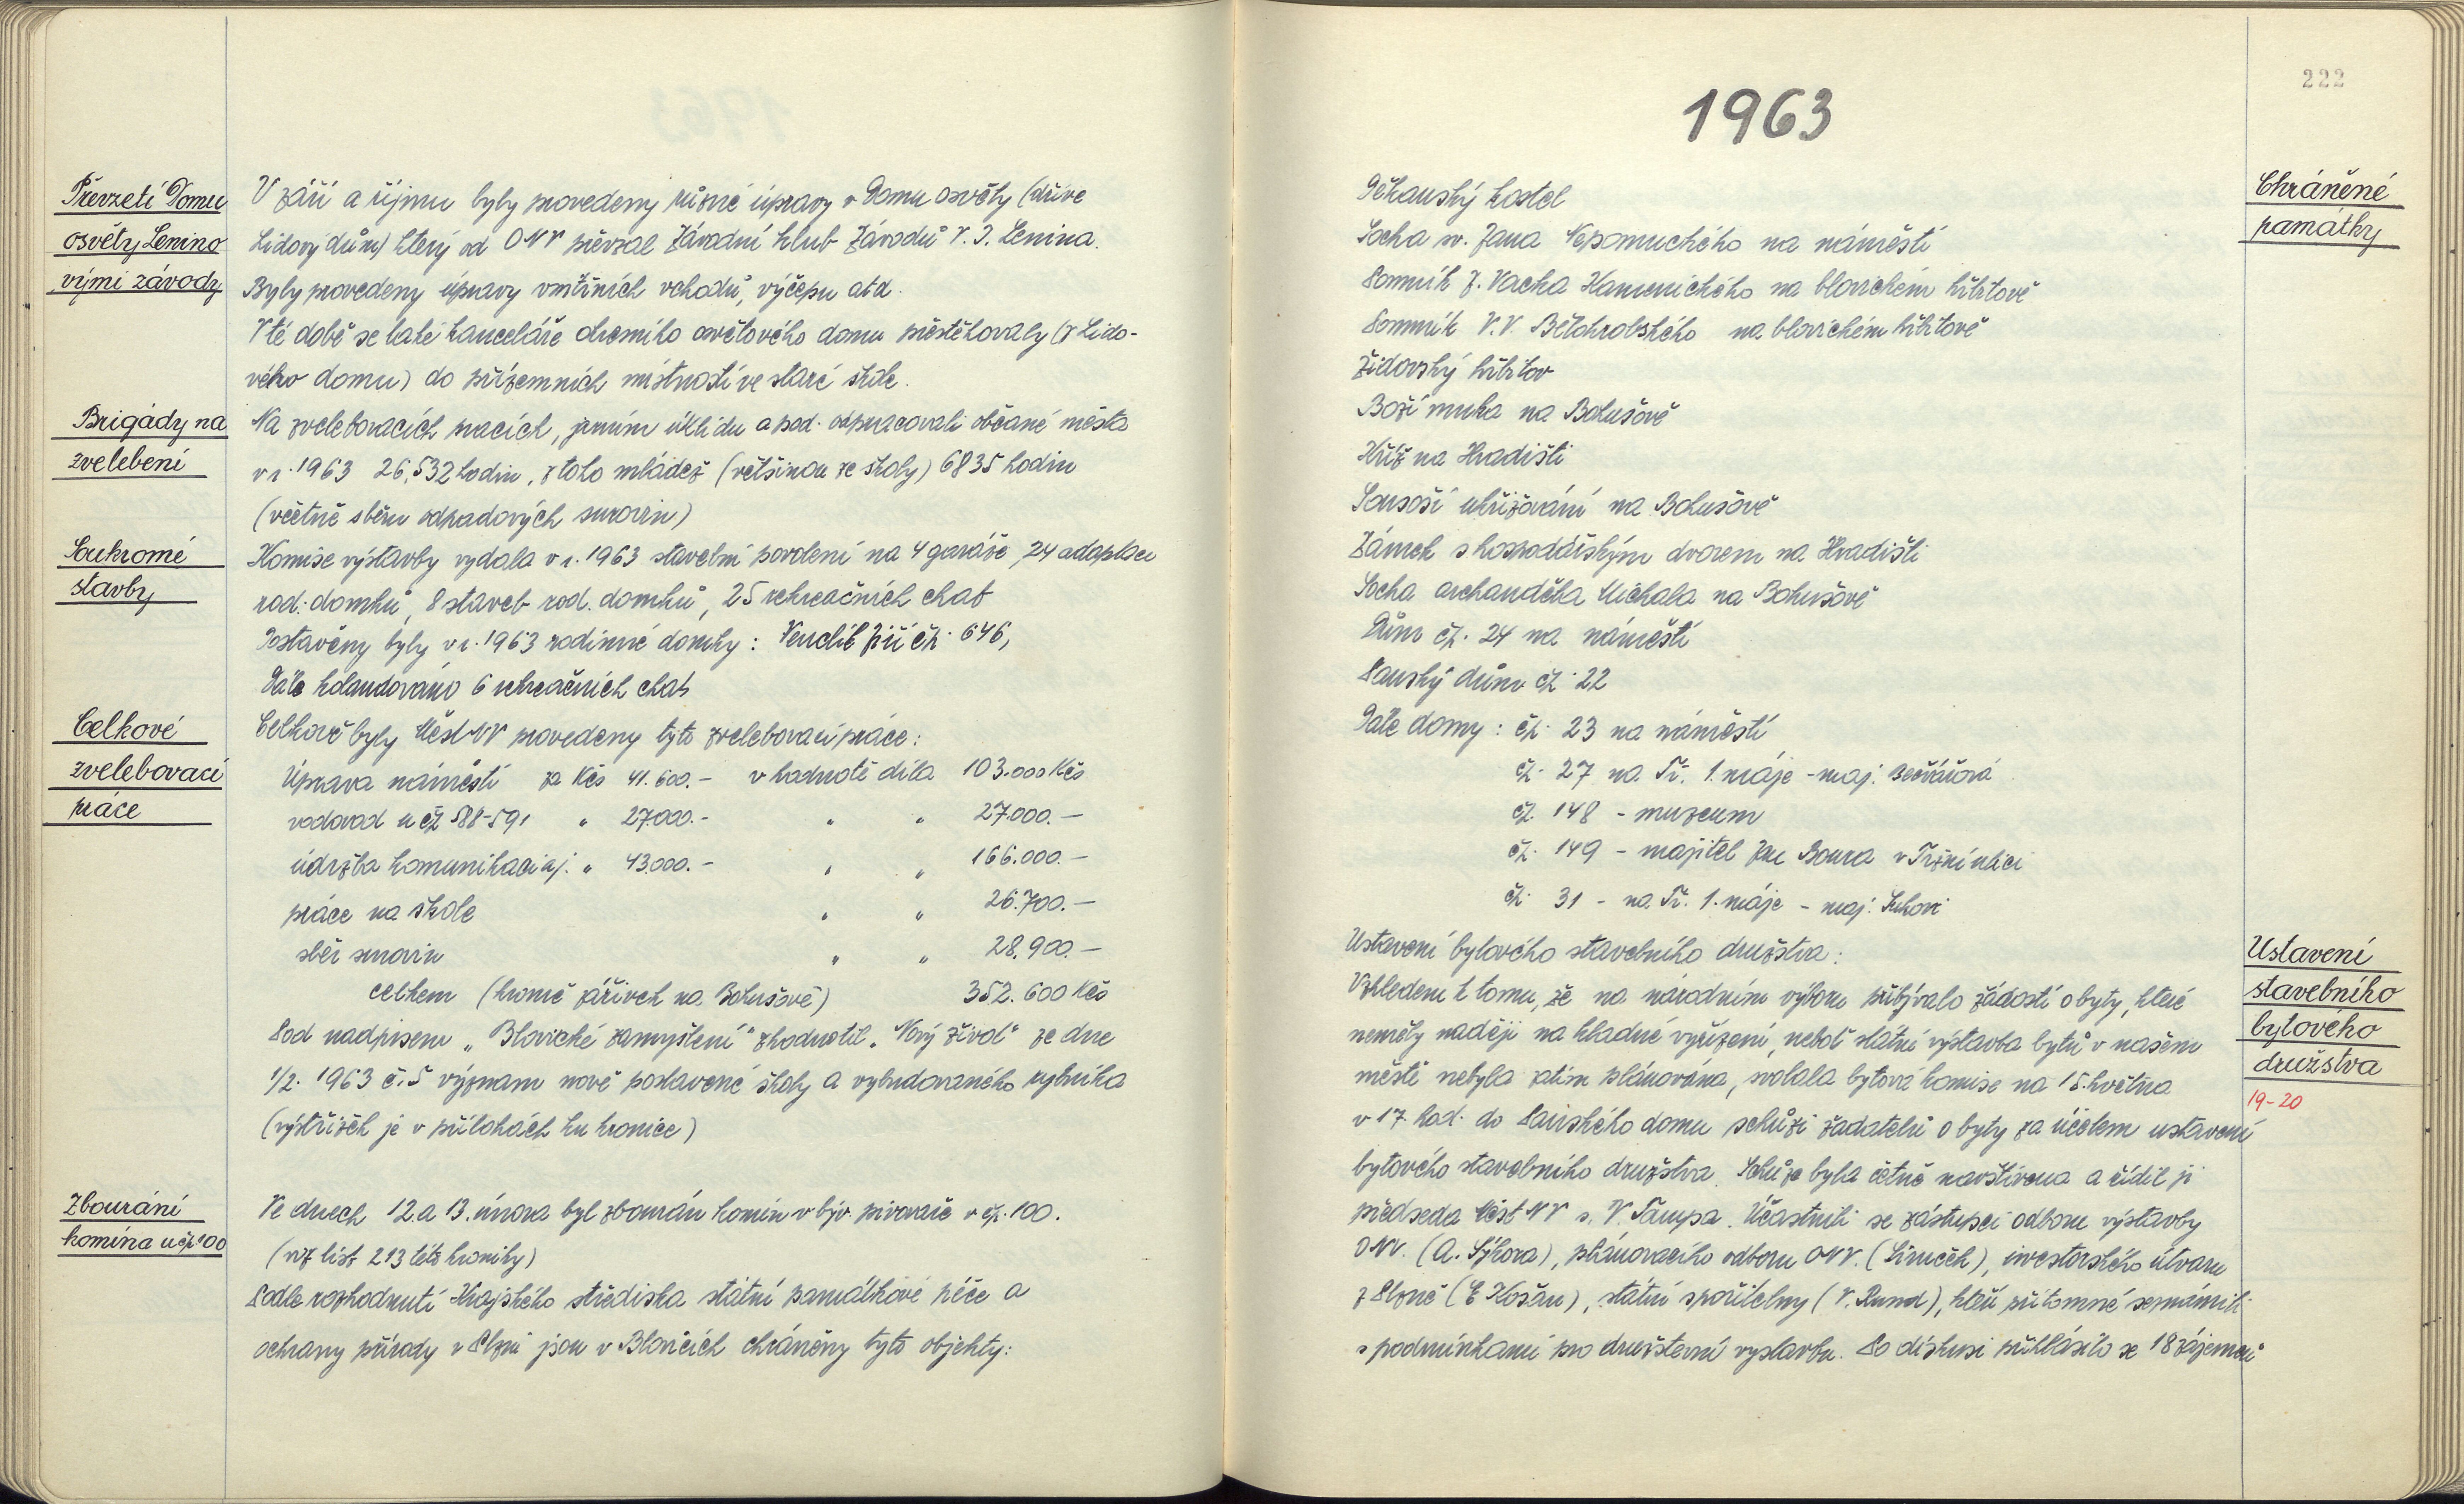 Převzetí Domu
osvěty Lenino
vými závody
V září a říjnu byly provedeny různé úpravy v Domu osvěty (dříve
Lidový dům) který od ONV převzal Závodní klub Závodů V. I. Lenina.
Byly provedeny úpravy vnitřních vchodů, výčepu atd.
V té době se také kanceláře okresního osvětového domu přestěhovaly (z Lido-
vého domu) do přízemních místností ve staré škole.
Brigády na
zvelebení
Na zvelebovacích pracích, jarním úklidu a pod. odpracovali občané města
v r. 1963 26.532 hodin, z toho mládež (většinou ze školy) 6835 hodin
(včetně sběru odpadových surovin)
Soukromé
stavby
Komise výstavby vydala v r. 1963 stavební povolení na 4 garáže, 24 adaptací
rod. domků, 8 staveb rod. domků, 25 rekreačních chat
Postaveny byly v r. 1963 rodinné domky: Jiří čp. 646,
Dále kolaudováno 6 rekreačních chat
Celkové
zvelebovací
práce
Celkově byly Měst NV provedeny tyto zvelebovací práce:
Úprava náměstí za Kčs 41.600.- v hodnotě díla 103.000 Kčs
vodovod u čp 588-591 " 27.000.- " " 27.000.—
údržba komunikací aj. " 43.000.- " " 166.000.—
práce na škole " " 26.700.—
sběr surovin " " 28.900.—
celkem (kromě zářivek na Bohušově) 352.600 Kčs
Pod nadpisem „Blovické zamyšlení" zhodnotil „Nový život" ze dne
1/2. 1963 č. 5 význam nově postavené školy a vybudovaného rybníka
(výstřižek je v přílohách ku kronice)
Zbourání
komína u čp 100
Ve dnech 12. a 13. února byl zbourán komín v býv. pivovaře v čp. 100.
(viz list 213 této kroniky)
Podle rozhodnutí Krajského střediska státní památkové péče a
ochrany přírody v Plzni jsou v Blovicích chráněny tyto objekty:
222
1963
Chráněné
památky
Děkanský kostel
Socha sv. Jana Nepomuckého na náměstí
Pomník J. Vacka Kamenického na blovickém hřbitově
Pomník V. V. Bělohrobského na blovickém hřbitově
Židovský hřbitov
Boží muka na Bohušově
Kříž na Hradišti
Sousoší ukřižování na Bohušově
Zámek s hospodářským dvorem na Hradišti
Socha archanděla Michala na Bohušově
Dům čp. 24 na náměstí
Panský dům čp. 22
Dále domy: čp. 23 na náměstí
čp. 27 na Tř. 1. máje - maj. Bečvářová
čp. 148 - muzeum
čp. 149 - majitel Jan Boura v Tržní ulici
čp. 31 - na Tř. 1. máje - maj.
Ustavení
stavebního
bytového
družstva
19-20
Ustavení bytového stavebního družstva:
Vzhledem k tomu, že na národním výboru přibývalo žádostí o byty, které
neměly naději na kladné vyřízení, neboť státní výstavba bytů v našem
městě nebyla zatím plánována, svolala bytová komise na 15. května
v 17 hod. do Panského domu schůzi žadatelů o byty za účelem ustavení
bytového stavebního družstva. Schůze byla četně navštívena a řídil ji
předseda Měst NV s. V. Tampa. Účastnili se zástupci odboru výstavby
ONV. (A. Sýkora), plánovacího odboru ONV. (Šimeček), investorského útvaru
z Plzně (E Košan), státní spořitelny (V. Rund), kteří přítomné seznámili
s podmínkami pro družstevní výstavbu. Po diskusi přihlásilo se 18 zájemců